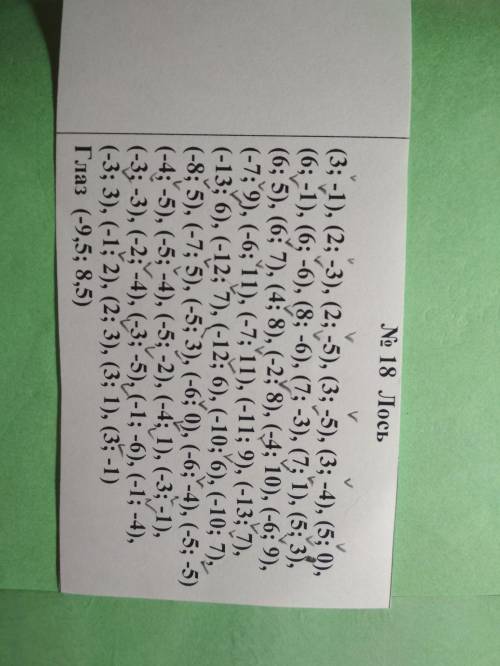 № 18 Лось
(3; -1), (2; -3), (2; -5), (3; -5), (3; -4), (5; 0),
(6; -1), (6; -6), (8; -6), (7; -3), (7; 1), (5; 3),
(6; 5), (6; 7), (4; 8), (-2; 8), (-4; 10), (-6; 9),
(-7; 9), (-6; 11), (-7; 11), (-11; 9), (-13; 7),
(-13; 6), (-12; 7), (-12; 6), (-10; 6), (-10; 7),
(-8; 5), (-7; 5), (-5; 3), (-6; 0), (-6; -4), (-5; -5)
(-4; -5), (-5; -4), (-5; -2), (-4; 1), (-3; -1),
(-3; -3), (-2; -4), (-3; -5), (-1; -6), (-1; -4),
(-3; 3), (-1; 2), (2; 3), (3; 1), (3; -1)
Глаз (-9,5; 8,5)